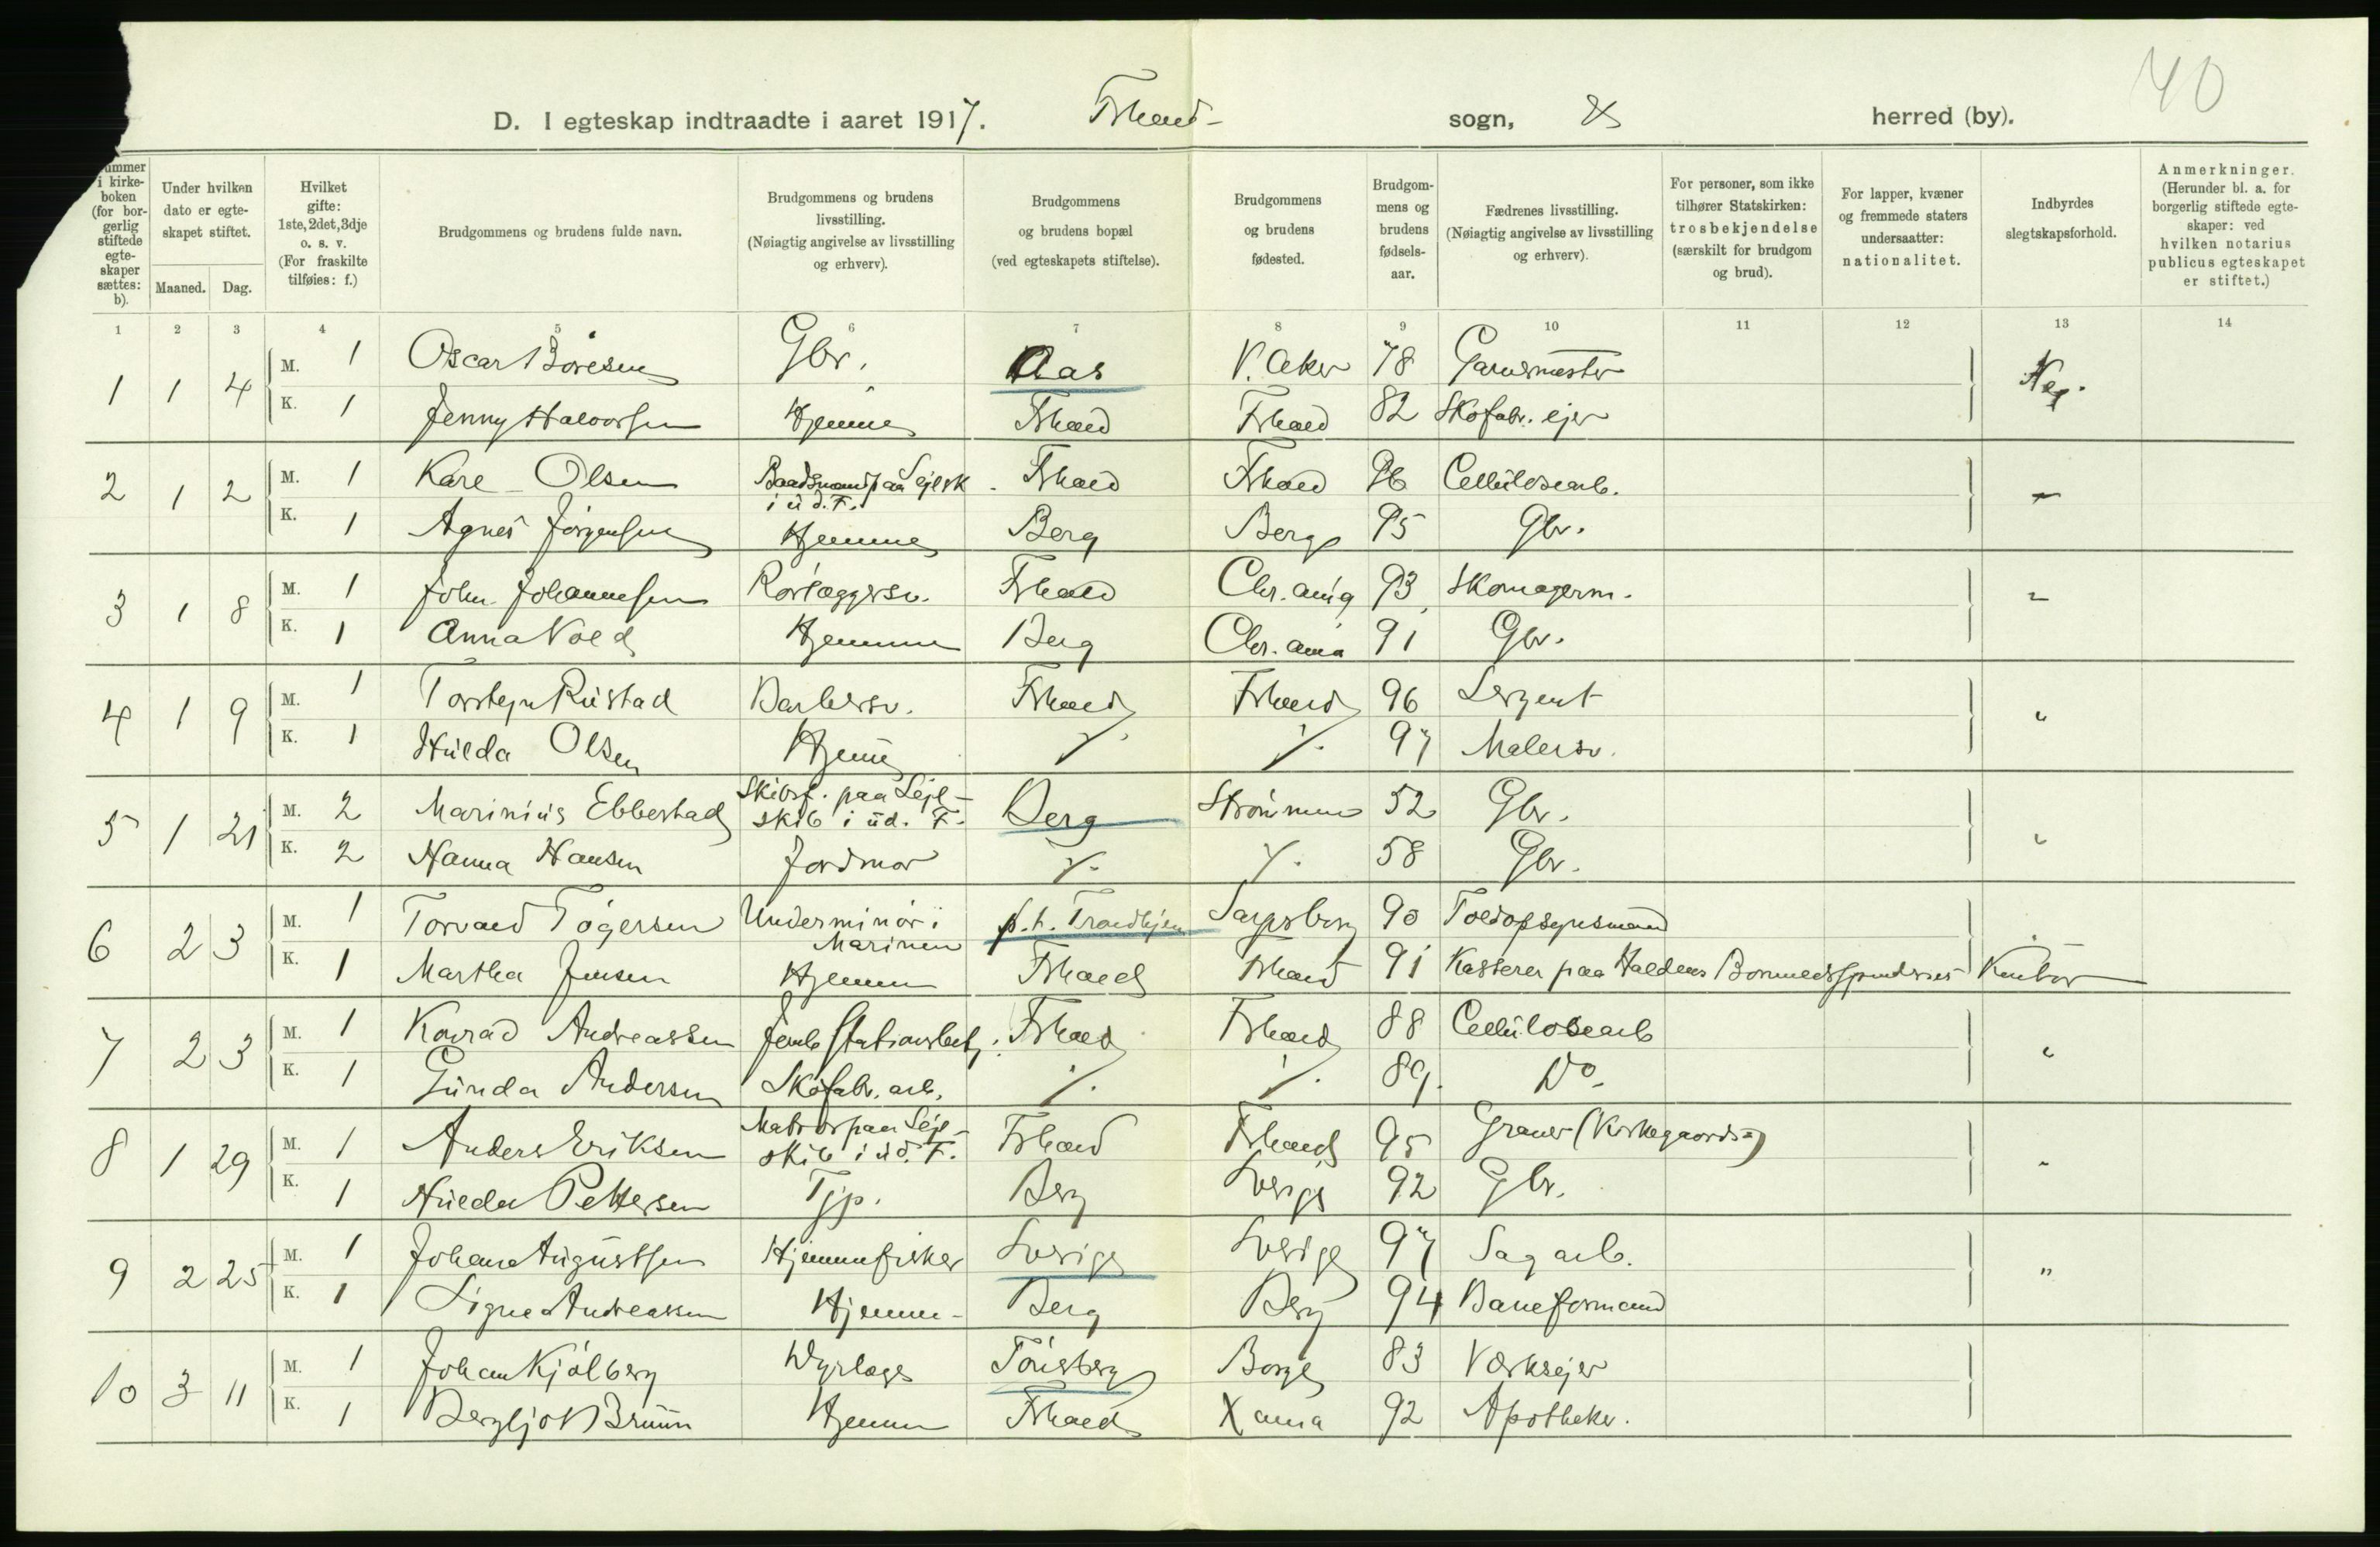 40
D. I egteskap indtraadte i aaret 1917. Fhald sogn, & herred (by).
ummer i kirke- boken (for bor- gerlig stiftede egte- skaper sættes: b).
Under hvilken dato er egte- skapet stiftet.
Maaned. Dag.
Hvilket gifte: 1ste, 2det, 3dje o. s. v. (For fraskilte tilføies: f.)
Brudgommens og brudens fulde navn.
Brudgommens og brudens livsstilling. (Nøiagtig angivelse av livsstilling og erhverv).
Brudgommens og brudens bopæl (ved egteskapets stiftelse).
Brudgommens og brudens fødested.
Brudgom- mens og brudens fødsels- aar.
Fædrenes livsstilling. (Nøiagtig angivelse av livsstilling og erhverv).
For personer, som ikke tilhører Statskirken: trosbekjendelse (særskilt for brudgom og brud).
For lapper, kvæner og fremmede staters undersaatter: nationalitet.
Indbyrdes slegtskapsforhold.
Anmerkninger. (Herunder bl. a. for borgerlig stiftede egte- skaper: ved hvilken notarius publicus egteskapet er stiftet.)
1 2 3 4 5 6 7 8 9 10 11 12 13 14
1 1 4 M. 1 Oscar Børesen Gbr. Aas V. Aker 78 Garvermester Neg.
K. 1 Jenny Halvorsen Hjemme Fhald Fhald 82 Skofabr. ejer
2 1 2 M. 1 Kåre Olsen Baadsmand paa Sejlsk i ud. F. Fhald Fhald 96 Cellulosearb. "
K. 1 Agnes Jørgensen Hjemme Berg Berg 95 Gbr.
3 1 8 M. 1 John Johannesen Rørlæggersv. Fhald Chr.ania 93 Skomagerm. "
K. 1 Anna Vold Hjemme Berg Chr.ania 91 Gbr.
4 1 9 M. 1 Torstejn Rustad Barbersv. Fhald Fhald 96 Sergent "
K. 1 Hulda Olsen Hjeme ٪. ٪. 97 Malersv.
5 1 21 M. 2 Marinius Ebbestad Skibsf. paa Sejl- skib i ud. F. Berg Strømmen 52 Gbr. "
K. 2 Hanna Hansen Jordmor ٪. ٪. 58 Gbr.
6 2 3 M. 1 Torvald Tøgersen Underminør i Marinen p.t. Trondhjem Sarpsborg 90 Toldopsynsmand
K. 1 Martha Jensen Hjemme Fhald Fhald 91 Kasserer paa Haldens Bomuldsspinderies Kontor
7 2 3 M. 1 Konrad Andreassen Jernb Stationsbetj. Fhald Fhald 88 Cellulosearb "
K. 1 Gunda Andersen Skofabr. arb. ٪. ٪. 89. Do.
8 1 29 M. 1 Anders Eriksen Matros paa Sejl- skib i ud. F. Fhald Fhald 95 Graver (Kirkegaards-) "
K. 1 Hulda Pettersen Tjp. Berg Sverige 92 Gbr.
9 2 25 M. 1 Johan Augustsen Hjemmefisker Sverige Sverige 97 Sagarb. "
K. 1 Signe Andreasen Hjemme- Berg Berg 94 Baneformand
10 3 11 M. 1 Johan Kjølberg Dyrlæge Tønsberg Borge 83 Værksejer
K. 1 Bergljot Bruun Hjemme Fhald Xania 92 Apotheker.